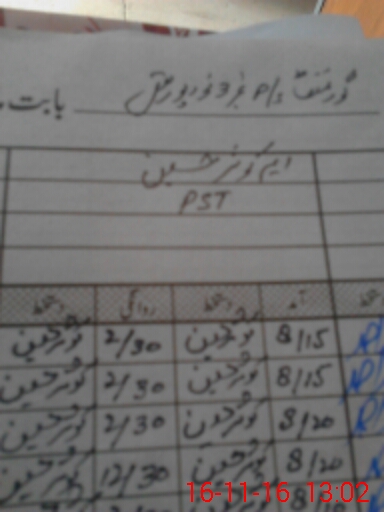 گورنمنٹ P/S نمبر 3 نورپور تھل بابت
ایم کوثر حسین
PST
دستخط آمد دستخط روانگی دستخط
8/15 کوثر حسین 2/30 کوثر حسین
8/15 کوثر حسین 2/30 کوثر حسین
8/20 کوثر حسین 2/30 کوثر حسین
8/20 کوثر حسین 12/30 کوثر حسین
16-11-16 13:02